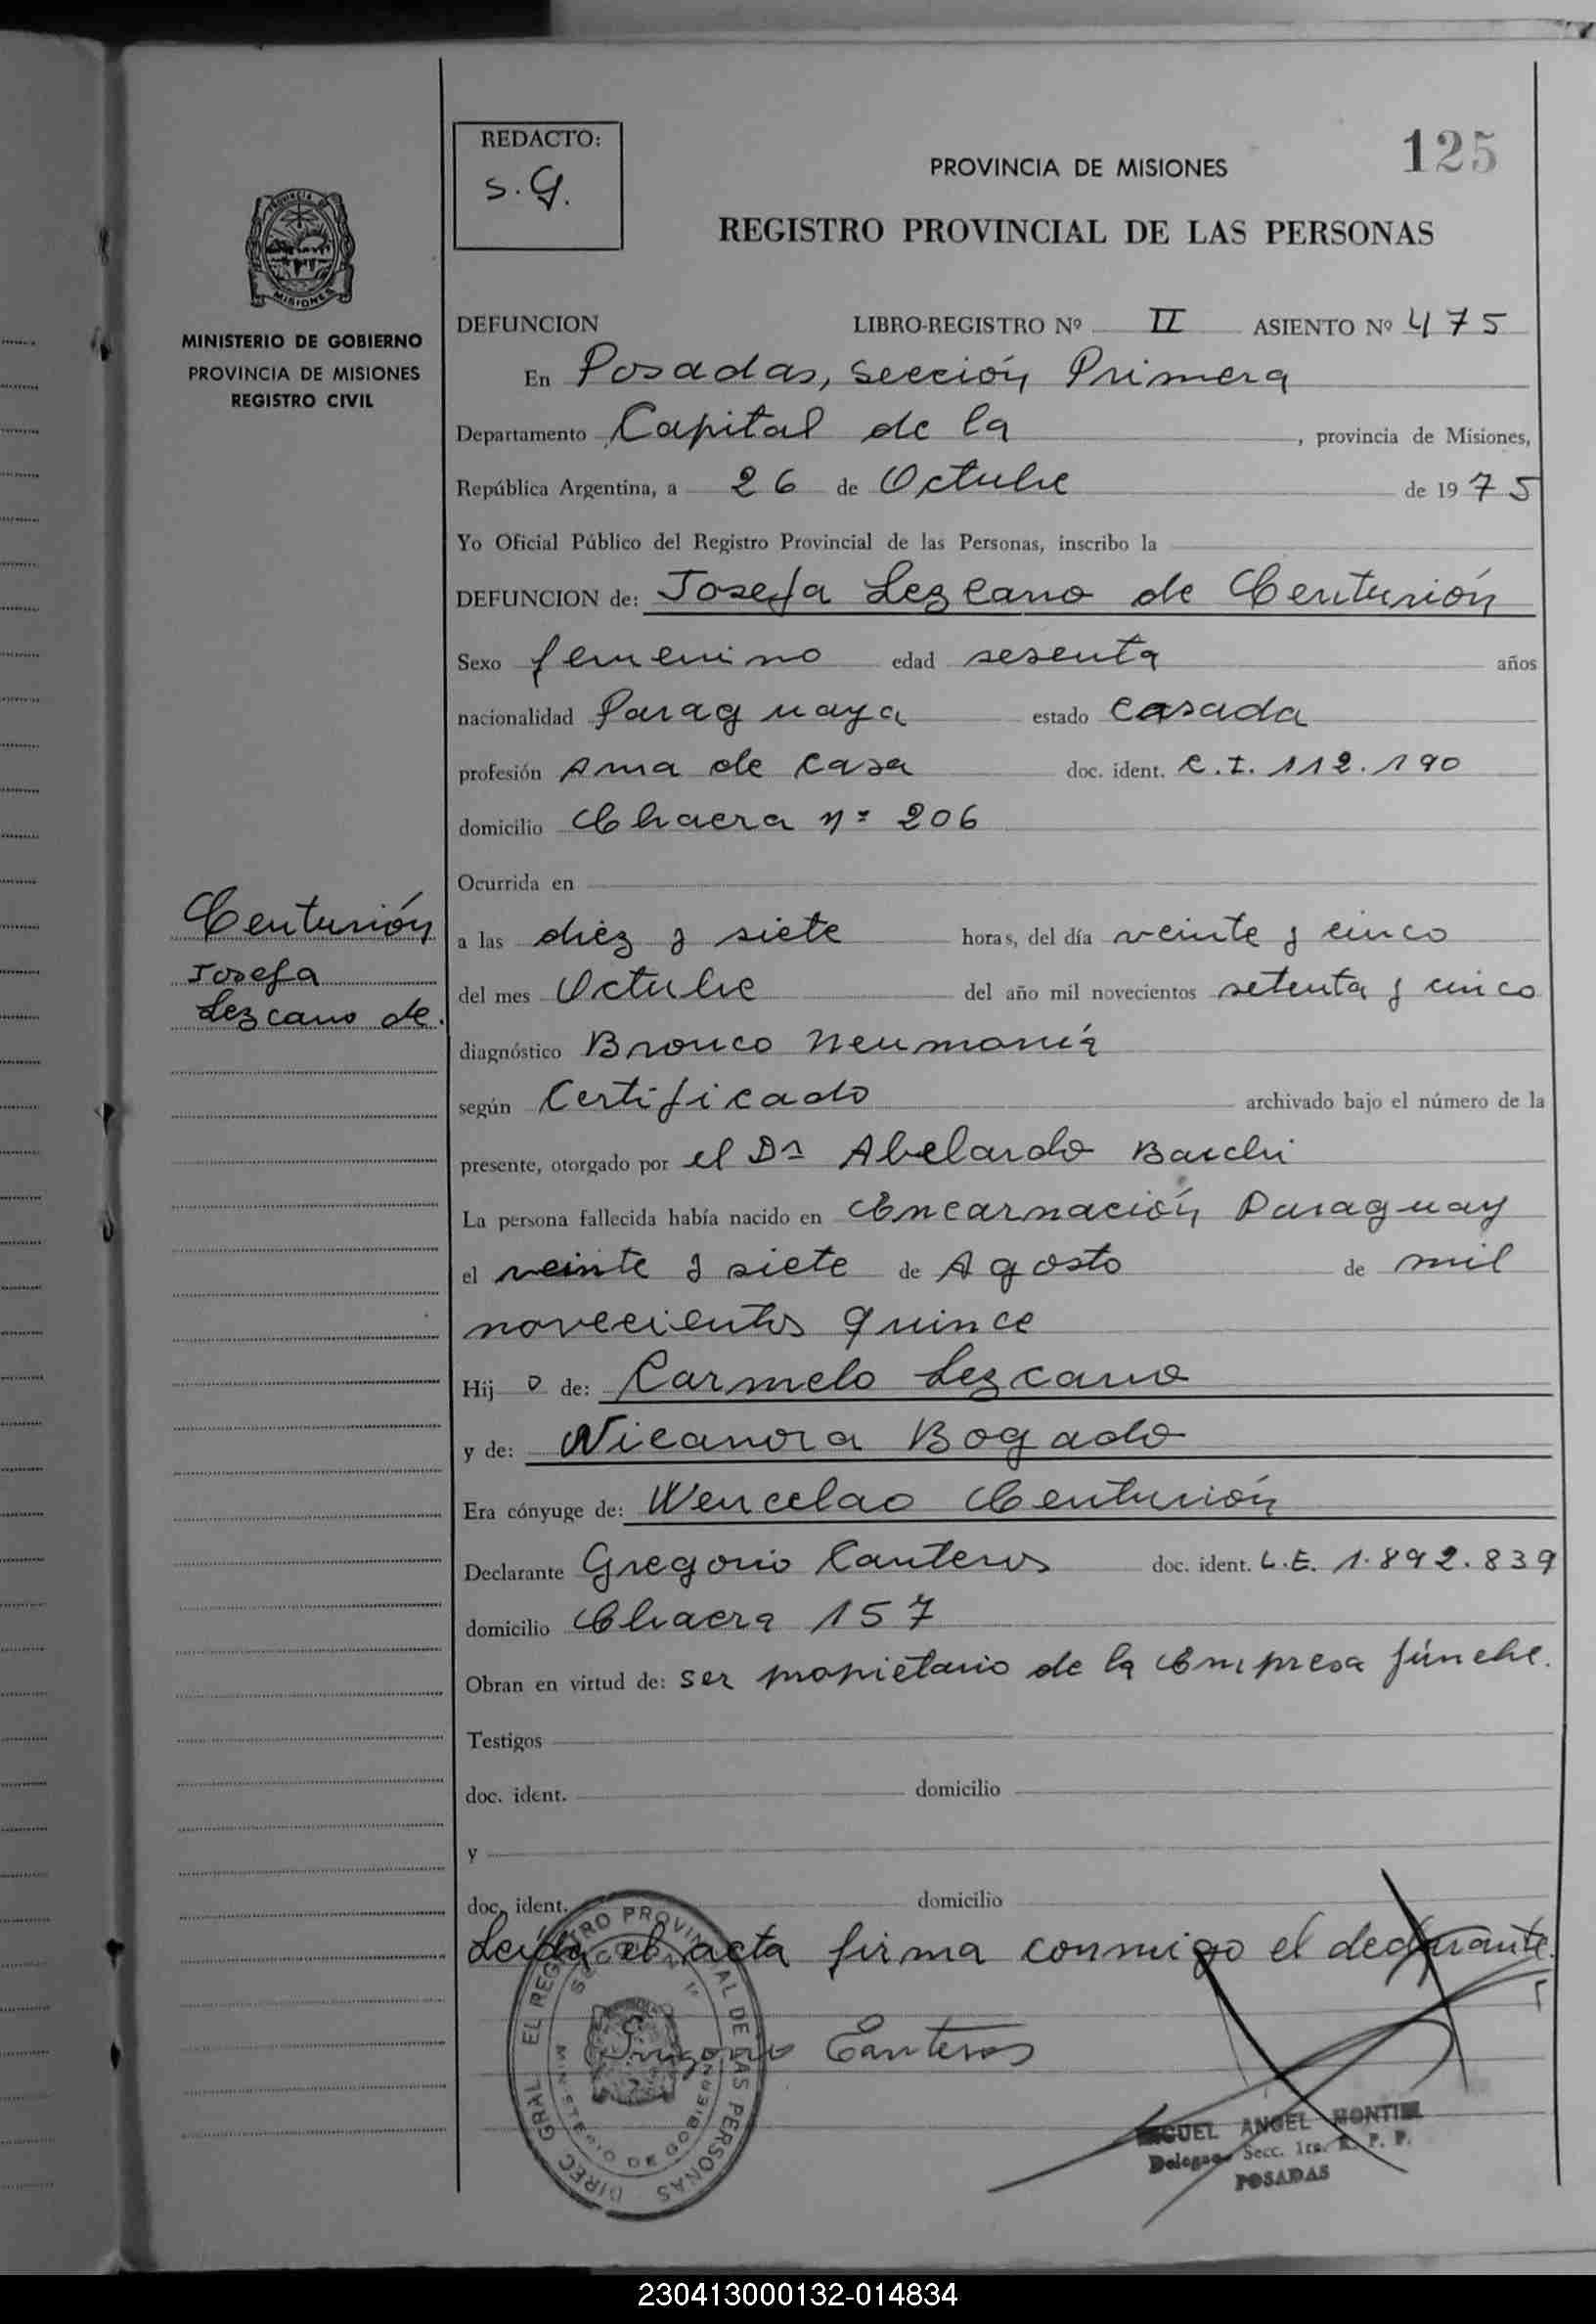 REDACTO:
S. G.
125
PROVINCIA DE MISIONES
REGISTRO PROVINCIAL DE LAS PERSONAS
MISIONES
MINISTERIO DE GOBIERNO
PROVINCIA DE MISIONES
REGISTRO CIVIL
DEFUNCION LIBRO-REGISTRO Nº II ASIENTO Nº 475
En Posadas, Sección Primera
Departamento Capital de la , provincia de Misiones,
República Argentina, a 26 de Octubre de 1975
Yo Oficial Público del Registro Provincial de las Personas, inscribo la
DEFUNCION de: Josefa Lezcano de Centurión
Sexo femenino edad sesenta años
nacionalidad Paraguaya estado Casada
profesión Ama de Casa doc. ident. C.I. 112.190
domicilio Chacra nº 206
Ocurrida en
Centurión
Josefa
Lezcano de.
a las diez y siete horas, del día veinte y cinco
del mes Octubre del año mil novecientos setenta y cinco
diagnóstico Bronco Neumonía
según Certificado archivado bajo el número de la
presente, otorgado por el Dr Abelardo
La persona fallecida había nacido en Encarnación Paraguay
el veinte y siete de Agosto de mil
novecientos quince
Hij o de: Carmelo Lezcano
y de: Nicanora Bogado
Era cónyuge de: Wencelao Centurión
Declarante Gregorio Canteros doc. ident. L.E. 1.892.839
domicilio Chacra 157
Obran en virtud de: ser propietario de la Empresa fúnebre.
Testigos
doc. ident. domicilio
y
doc. ident. domicilio
Leída el acta firma conmigo el declarante.
DIREC GRAL EL REGISTRO PROVINCIAL DE LAS PERSONAS
MINISTERIO DE GOBIERNO
Gregorio Canteros
MIGUEL ANGEL
Delegado Secc. 1ra. R. P. P.
POSADAS
230413000132-014834